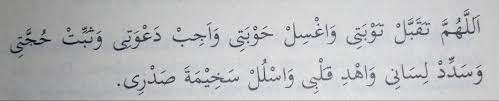 اَللّٰهُمَّ تَقَبَّلْ تَوْبَتِى وَاغْسِلْ حَوْبَتِى وَاَجِبْ دَعْوَتِى وَثَبِّتْ حُجَّتِى
وَسَدِّدْ لِسَانِى وَاهْدِ قَلْبِى وَاسْلُلْ سَخِيْمَةَ صَدْرِى.